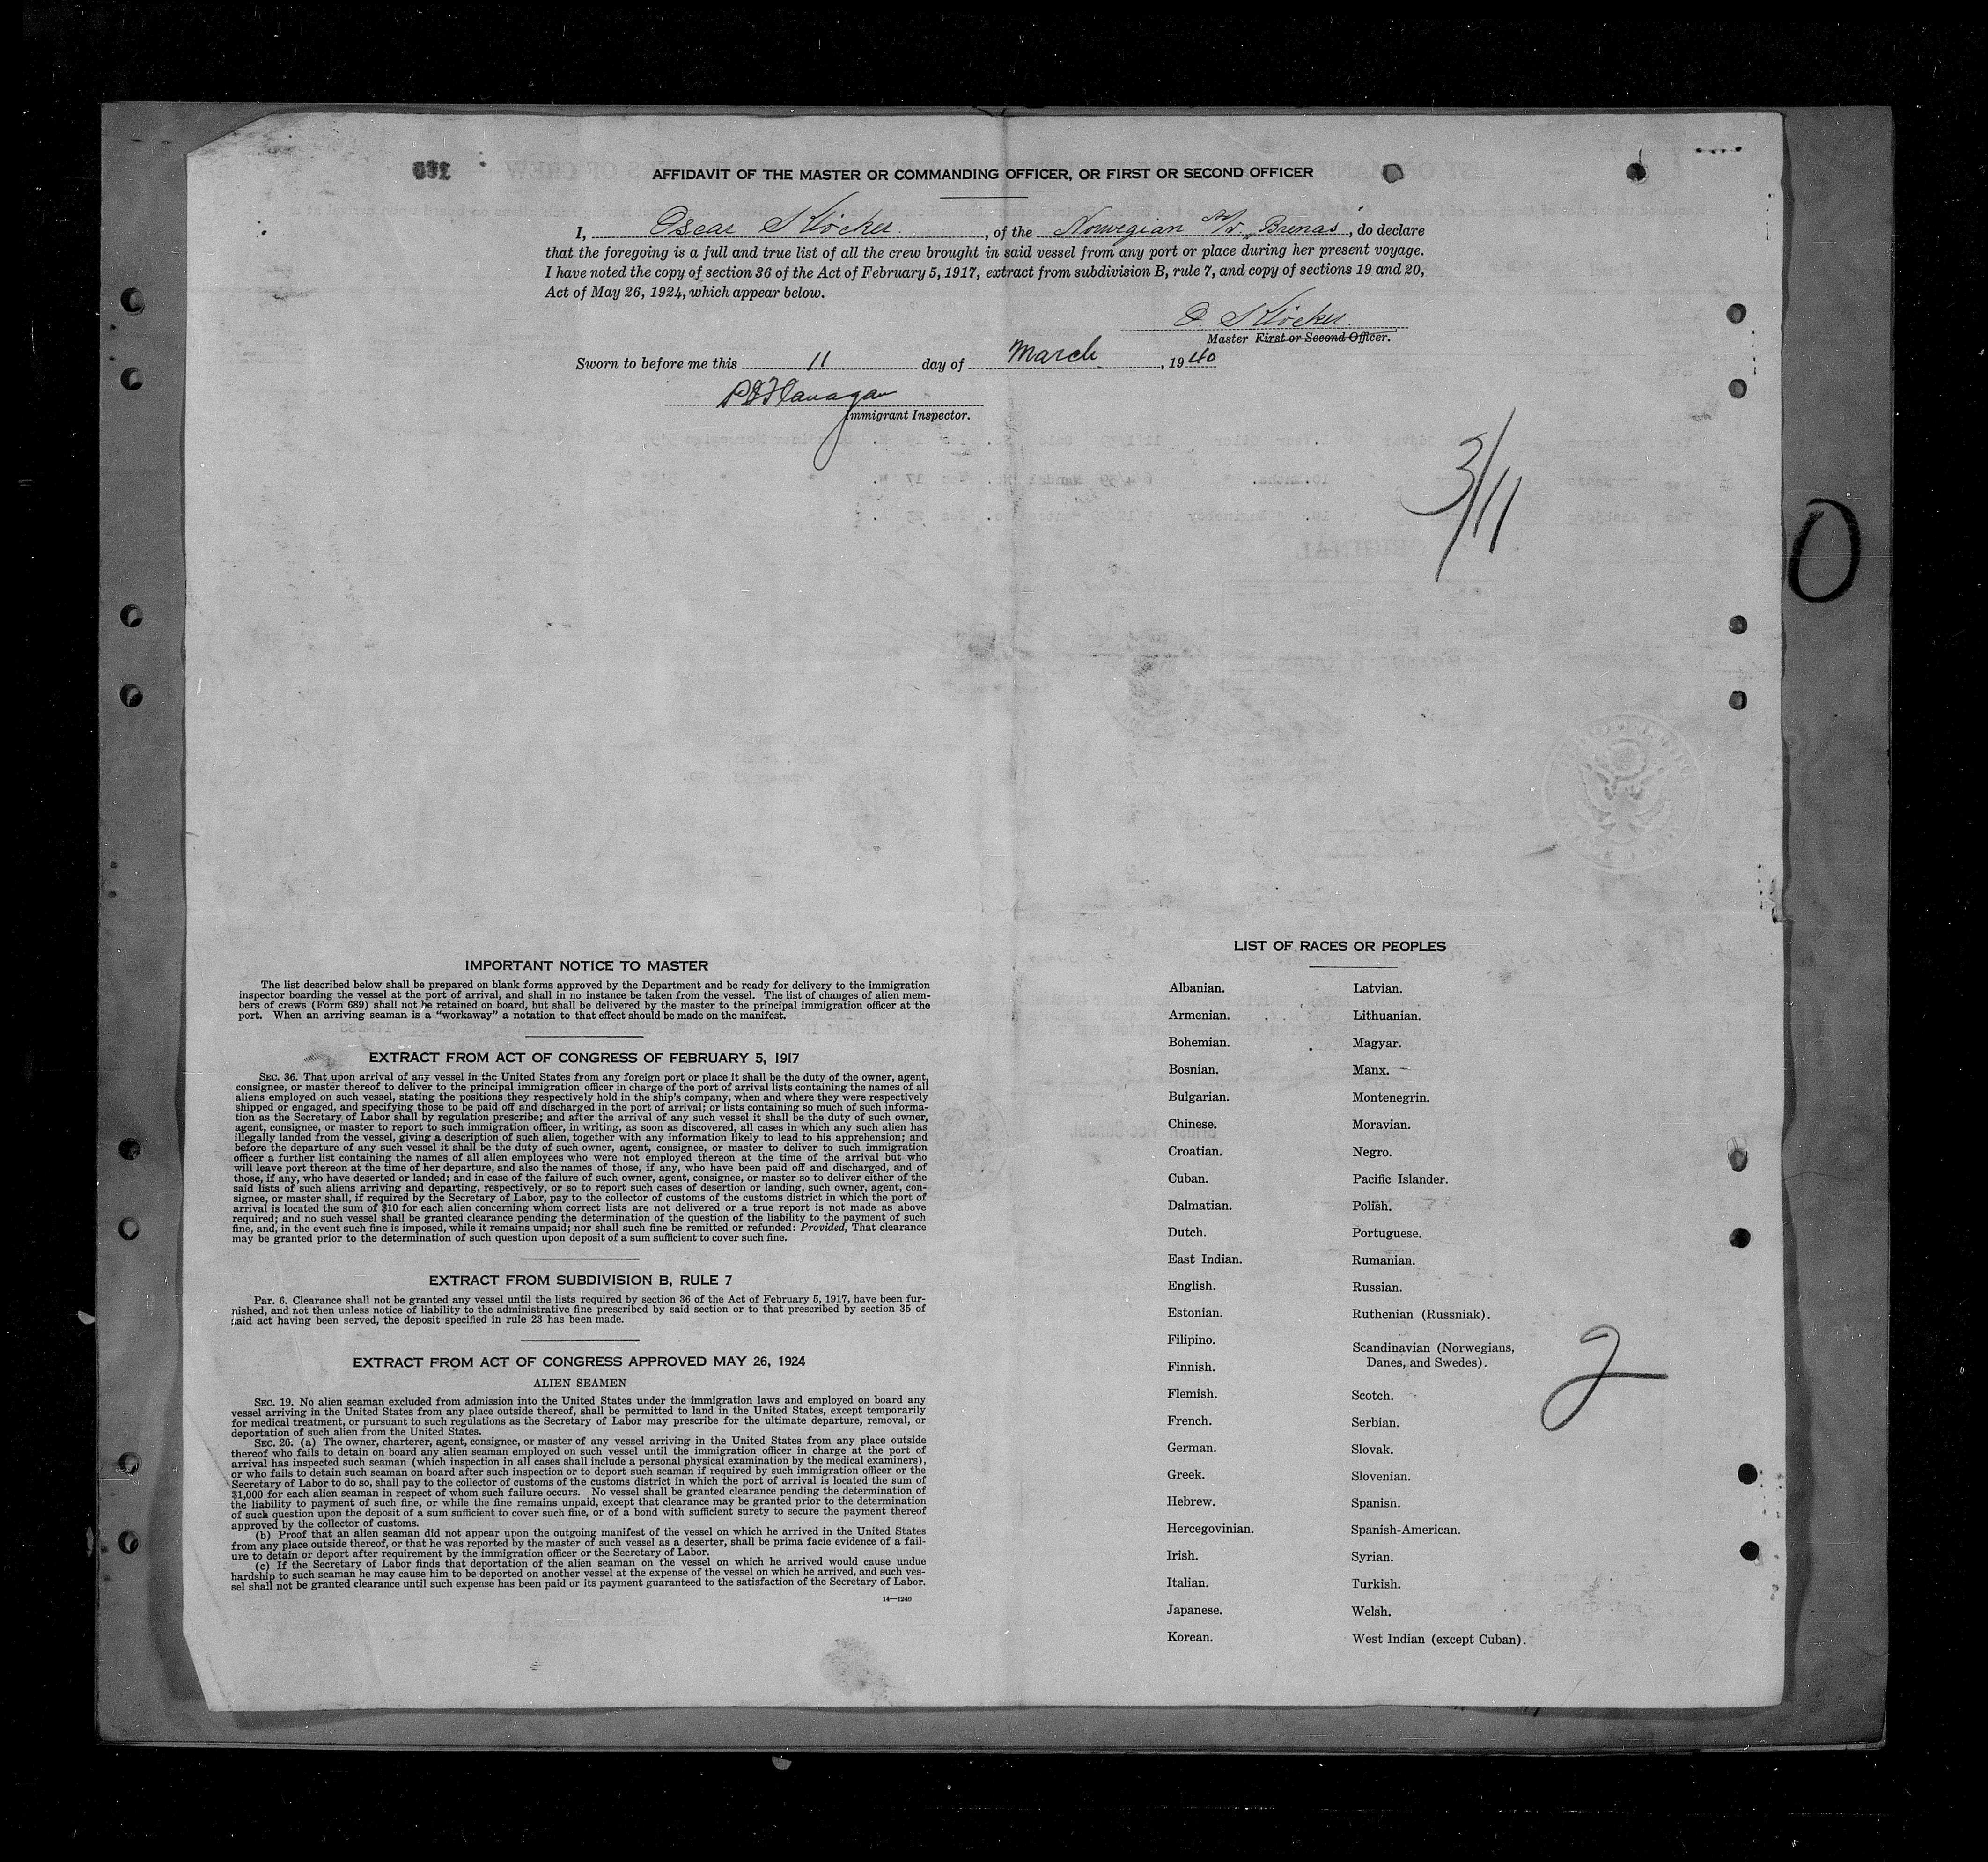 AFFIDAVIT OF THE MASTER OR COMMANDING OFFICER, OR FIRST OR SECOND OFFICER
I, Oscar Klöcker, of the Norwegian M/S. „Brenas", do declare
that the foregoing is a full and true list of all the crew brought in said vessel from any port or place during her present voyage.
I have noted the copy of section 36 of the Act of February 5, 1917, extract from subdivision B, rule 7, and copy of sections 19 and 20,
Act of May 26, 1924, which appear below.
O. Klöcker
Master First or Second Officer.
Sworn to before me this 11 day of March, 1940
Flanagan
Immigrant Inspector.
3/11
O
IMPORTANT NOTICE TO MASTER
The list described below shall be prepared on blank forms approved by the Department and be ready for delivery to the immigration
inspector boarding the vessel at the port of arrival, and shall in no instance be taken from the vessel. The list of changes of alien mem-
bers of crews (Form 689) shall not be retained on board, but shall be delivered by the master to the principal immigration officer at the
port. When an arriving seaman is a "workaway" a notation to that effect should be made on the manifest.
EXTRACT FROM ACT OF CONGRESS OF FEBRUARY 5, 1917
SEC. 36. That upon arrival of any vessel in the United States from any foreign port or place it shall be the duty of the owner, agent,
consignee, or master thereof to deliver to the principal immigration officer in charge of the port of arrival lists containing the names of all
aliens employed on such vessel, stating the positions they respectively hold in the ship's company, when and where they were respectively
shipped or engaged, and specifying those to be paid off and discharged in the port of arrival; or lists containing so much of such informa-
tion as the Secretary of Labor shall by regulation prescribe; and after the arrival of any such vessel it shall be the duty of such owner,
agent, consignee, or master to report to such immigration officer, in writing, as soon as discovered, all cases in which any such alien has
illegally landed from the vessel, giving a description of such alien, together with any information likely to lead to his apprehension; and
before the departure of any such vessel it shall be the duty of such owner, agent, consignee, or master to deliver to such immigration
officer a further list containing the names of all alien employees who were not employed thereon at the time of the arrival but who
will leave port thereon at the time of her departure, and also the names of those, if any, who have been paid off and discharged, and of
those, if any, who have deserted or landed; and in case of the failure of such owner, agent, consignee, or master so to deliver either of the
said lists of such aliens arriving and departing, respectively, or so to report such cases of desertion or landing, such owner, agent, con-
signee, or master shall, if required by the Secretary of Labor, pay to the collector of customs of the customs district in which the port of
arrival is located the sum of $10 for each alien concerning whom correct lists are not delivered or a true report is not made as above
required; and no such vessel shall be granted clearance pending the determination of the question of the liability to the payment of such
fine, and, in the event such fine is imposed, while it remains unpaid; nor shall such fine be remitted or refunded: Provided, That clearance
may be granted prior to the determination of such question upon deposit of a sum sufficient to cover such fine.
EXTRACT FROM SUBDIVISION B, RULE 7
Par. 6. Clearance shall not be granted any vessel until the lists required by section 36 of the Act of February 5, 1917, have been fur-
nished, and not then unless notice of liability to the administrative fine prescribed by said section or to that prescribed by section 35 of
said act having been served, the deposit specified in rule 23 has been made.
EXTRACT FROM ACT OF CONGRESS APPROVED MAY 26, 1924
ALIEN SEAMEN
SEC. 19. No alien seaman excluded from admission into the United States under the immigration laws and employed on board any
vessel arriving in the United States from any place outside thereof, shall be permitted to land in the United States, except temporarily
for medical treatment, or pursuant to such regulations as the Secretary of Labor may prescribe for the ultimate departure, removal, or
deportation of such alien from the United States.
SEC. 20. (a) The owner, charterer, agent, consignee, or master of any vessel arriving in the United States from any place outside
thereof who fails to detain on board any alien seaman employed on such vessel until the immigration officer in charge at the port of
arrival has inspected such seaman (which inspection in all cases shall include a personal physical examination by the medical examiners),
or who fails to detain such seaman on board after such inspection or to deport such seaman if required by such immigration officer or the
Secretary of Labor to do so, shall pay to the collector of customs of the customs district in which the port of arrival is located the sum of
$1,000 for each alien seaman in respect of whom such failure occurs. No vessel shall be granted clearance pending the determination of
the liability to payment of such fine, or while the fine remains unpaid, except that clearance may be granted prior to the determination
of such question upon the deposit of a sum sufficient to cover such fine, or of a bond with sufficient surety to secure the payment thereof
approved by the collector of customs.
(b) Proof that an alien seaman did not appear upon the outgoing manifest of the vessel on which he arrived in the United States
from any place outside thereof, or that he was reported by the master of such vessel as a deserter, shall be prima facie evidence of a fail-
ure to detain or deport after requirement by the immigration officer or the Secretary of Labor.
(c) If the Secretary of Labor finds that deportation of the alien seaman on the vessel on which he arrived would cause undue
hardship to such seaman he may cause him to be deported on another vessel at the expense of the vessel on which he arrived, and such ves-
sel shall not be granted clearance until such expense has been paid or its payment guaranteed to the satisfaction of the Secretary of Labor.
14—1240
LIST OF RACES OR PEOPLES
Albanian.
Armenian.
Bohemian.
Bosnian.
Bulgarian.
Chinese.
Croatian.
Cuban.
Dalmatian.
Dutch.
East Indian.
English.
Estonian.
Filipino.
Finnish.
Flemish.
French.
German.
Greek.
Hebrew.
Hercegovinian.
Irish.
Italian.
Japanese.
Korean.
Latvian.
Lithuanian.
Magyar.
Manx.
Montenegrin.
Moravian.
Negro.
Pacific Islander.
Polish.
Portuguese.
Rumanian.
Russian.
Ruthenian (Russniak).
Scandinavian (Norwegians,
Danes, and Swedes).
Scotch.
Serbian.
Slovak.
Slovenian.
Spanish.
Spanish-American.
Syrian.
Turkish.
Welsh.
West Indian (except Cuban).
2